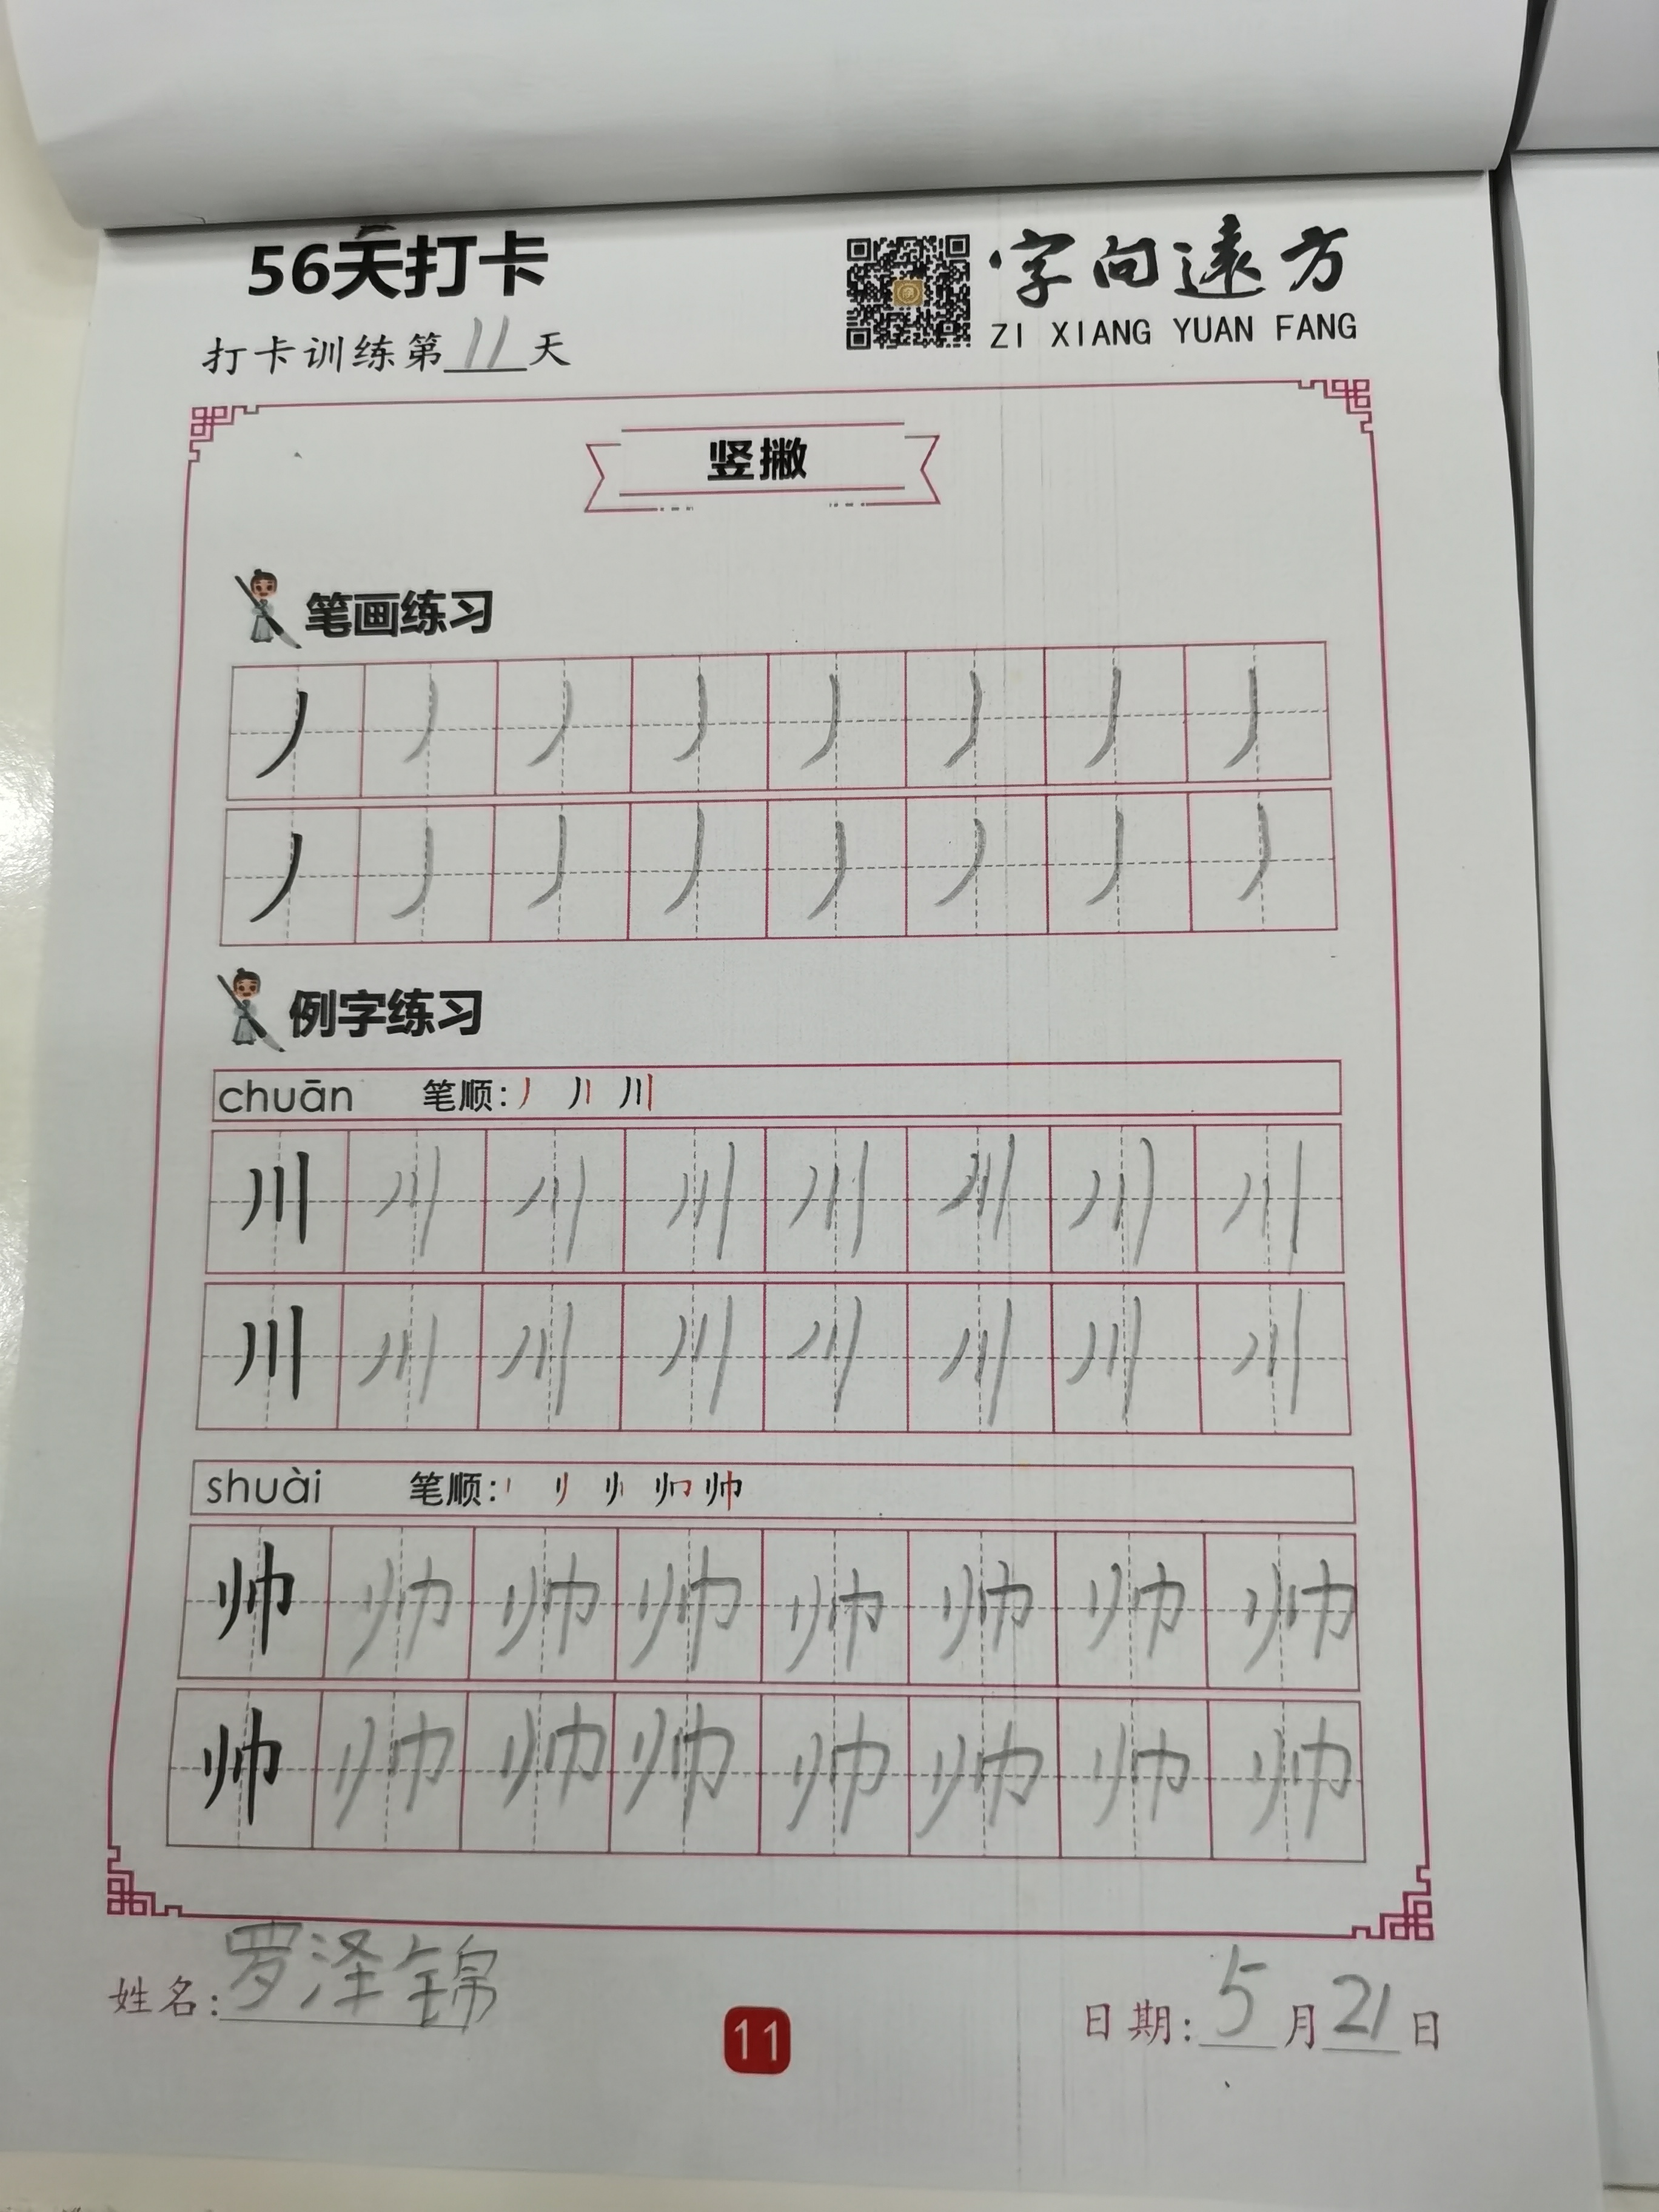 56天打卡
字向遠方
ZI XIANG YUAN FANG
打卡训练第11天
竖撇
笔画练习
丿 丿 丿 丿 丿 丿 丿 丿
丿 丿 丿 丿 丿 丿 丿 丿
例字练习
chuān 笔顺: 丿 丿丨 川
川 川 川 川 川 川 川 川
川 川 川 川 川 川 川 川
shuài 笔顺: 丨 刂 帅
帅 帅 帅 帅 帅 帅 帅 帅
帅 帅 帅 帅 帅 帅 帅 帅
姓名: 罗泽锦
11
日期: 5月21日